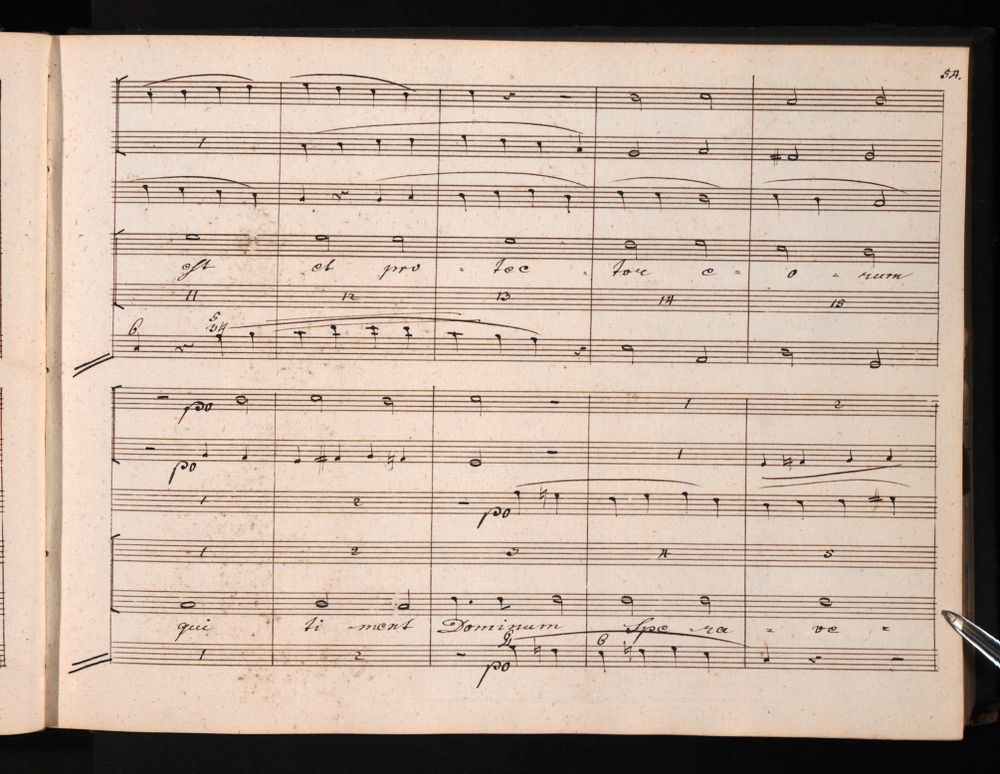 54.
1
est et pro - tec - tor e - o - rum
11 12 13 14 15
6 5
po 1 2
po 1
1 2 po
1 2 3 4 5
qui ti - ment Dominum Spe - ra - ve -
6
1 2 po